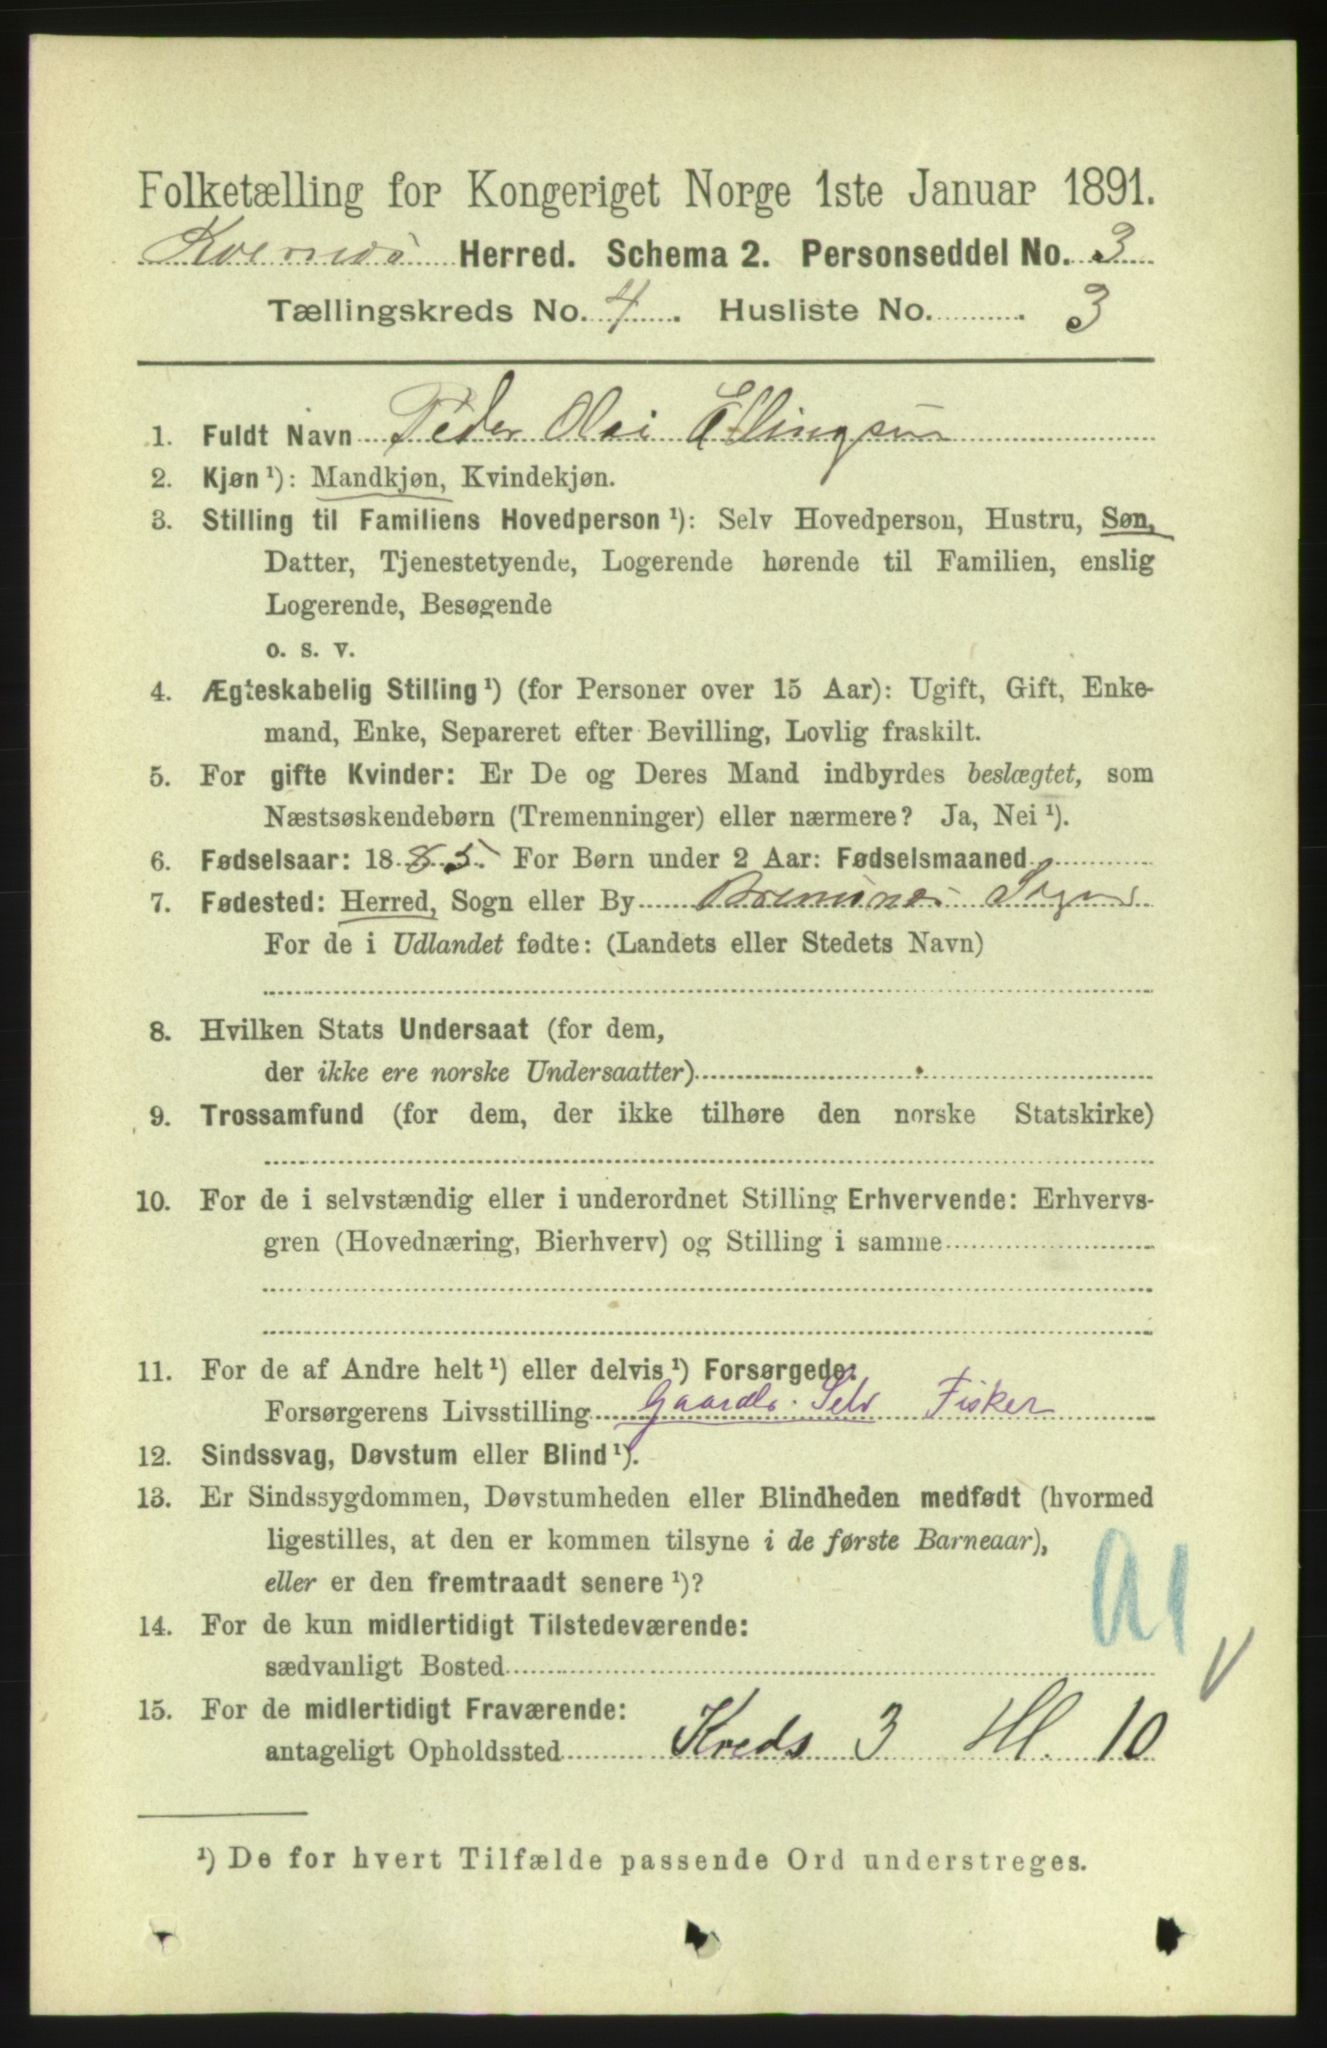 Folketælling for Kongeriget Norge 1ste Januar 1891.
Kvernes Herred. Schema 2. Personseddel No. 3
Tællingskreds No. 4. Husliste No. 3
1. Fuldt Navn Peder Olai Ellingsen
2. Kjøn ¹): Mandkjøn, Kvindekjøn.
3. Stilling til Familiens Hovedperson ¹): Selv Hovedperson, Hustru, Søn,
Datter, Tjenestetyende, Logerende hørende til Familien, enslig
Logerende, Besøgende
o. s. v.
4. Ægteskabelig Stilling ¹) (for Personer over 15 Aar): Ugift, Gift, Enke-
mand, Enke, Separeret efter Bevilling, Lovlig fraskilt.
5. For gifte Kvinder: Er De og Deres Mand indbyrdes beslægtet, som
Næstsøskendebørn (Tremenninger) eller nærmere? Ja, Nei ¹).
6. Fødselsaar: 1885. For Børn under 2 Aar: Fødselsmaaned
7. Fødested: Herred, Sogn eller By Bremsnes Sogn
For de i Udlandet fødte: (Landets eller Stedets Navn)
8. Hvilken Stats Undersaat (for dem,
der ikke ere norske Undersaatter)
9. Trossamfund (for dem, der ikke tilhøre den norske Statskirke)
10. For de i selvstændig eller i underordnet Stilling Erhvervende: Erhvervs-
gren (Hovednæring, Bierhverv) og Stilling i samme
11. For de af Andre helt ¹) eller delvis ¹) Forsørgede:
Forsørgerens Livsstilling Gaardb. Selv Fisker
12. Sindssvag, Døvstum eller Blind ¹).
13. Er Sindssygdommen, Døvstumheden eller Blindheden medfødt (hvormed
ligestilles, at den er kommen tilsyne i de første Barneaar),
eller er den fremtraadt senere ¹)?
14. For de kun midlertidigt Tilstedeværende:
sædvanligt Bosted
15. For de midlertidigt Fraværende:
antageligt Opholdssted Kreds 3 Hl. 10
¹) De for hvert Tilfælde passende Ord understreges.